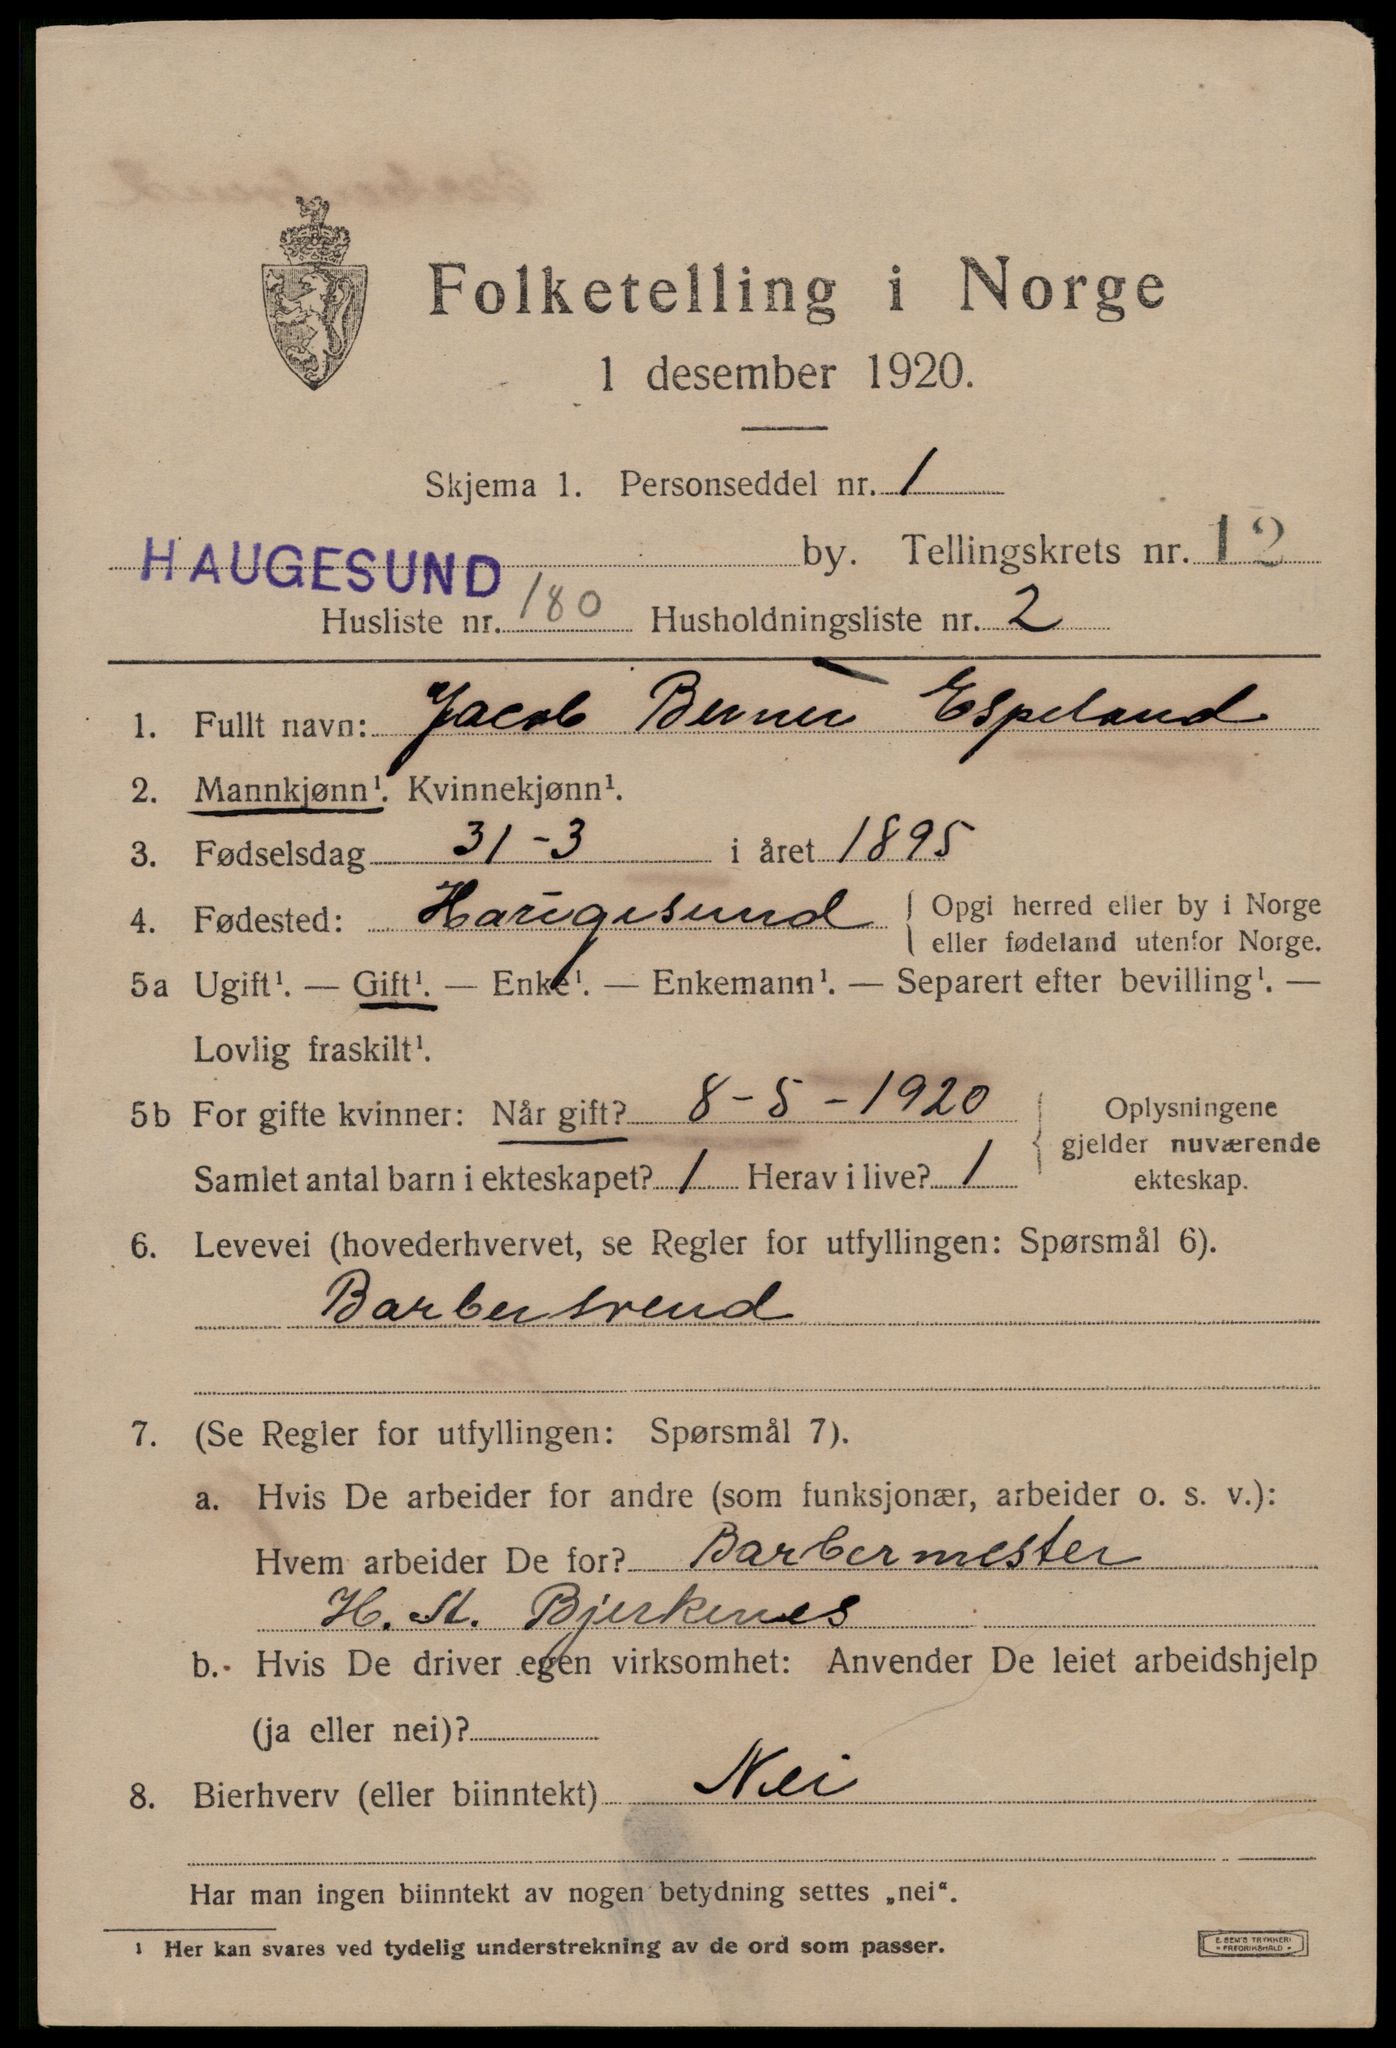 Folketelling i Norge
1 desember 1920.
Skjema 1. Personseddel nr. 1
HAUGESUND by. Tellingskrets nr. 12
Husliste nr. 180 Husholdningsliste nr. 2
1. Fullt navn: Jacob Berner Espeland
2. Mannkjønn¹. Kvinnekjønn¹.
3. Fødselsdag 31-3 i året 1895
4. Fødested: Haugesund { Opgi herred eller by i Norge
eller fødeland utenfor Norge.
5a Ugift¹. — Gift¹. — Enke¹. — Enkemann¹. — Separert efter bevilling¹. —
Lovlig fraskilt¹.
5b For gifte kvinner: Når gift? 8-5-1920
Samlet antal barn i ekteskapet? 1 Herav i live? 1
{ Oplysningene
gjelder nuværende
ekteskap.
6. Levevei (hovederhvervet, se Regler for utfyllingen: Spørsmål 6).
Barbersvend
7. (Se Regler for utfyllingen: Spørsmål 7).
a. Hvis De arbeider for andre (som funksjonær, arbeider o. s. v.):
Hvem arbeider De for? Barbermester
H. St. Bjerkenes
b. Hvis De driver egen virksomhet: Anvender De leiet arbeidshjelp
(ja eller nei)?
8. Bierhverv (eller biinntekt) Nei
Har man ingen biinntekt av nogen betydning settes „nei“.
¹ Her kan svares ved tydelig understrekning av de ord som passer.
E. SEM'S TRYKKERI
• FREDRIKSHALD •